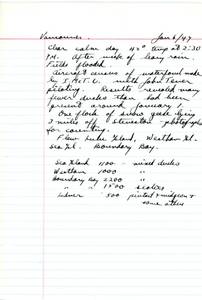 Vancouver. Jan 6/47
Clear calm day 40° temp at 2:30
P.M. After week of heavy rain.
Fields flooded.
Aircraft census of waterfowl made
by I. McT. C. with John Fever
piloting. Results revealed many
fewer ducks than had been
present around January 1.
One flock of snow geese lying
3 miles off Steveston - photographed
for counting.
Flew Lulu Island, Westham Isl.
Sea Isl. Boundary Bay.
Sea Island 1100 - mixed ducks
Westham 1000 "
Boundary Bay 2200 "
" 1500 scoters
Ladner 500 pintail & widgeon &
some others